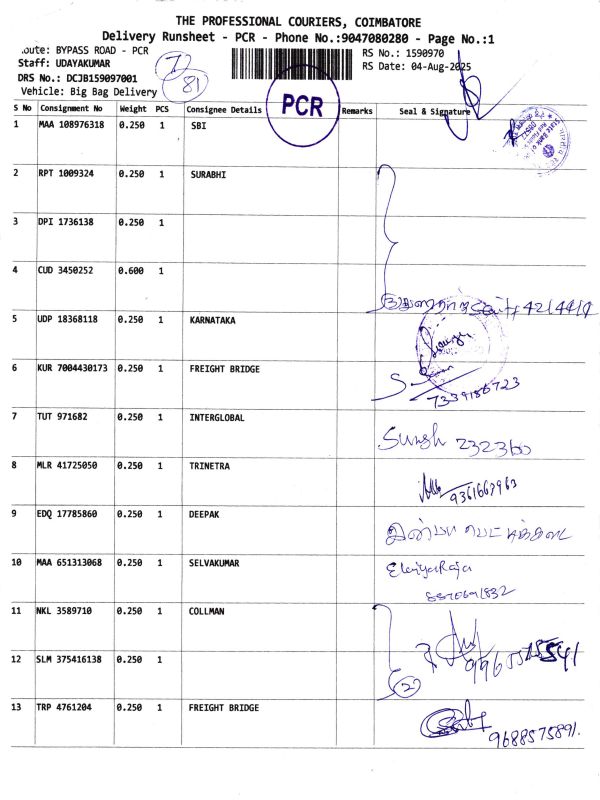 THE PROFESSIONAL COURIERS, COIMBATORE
Delivery Runsheet - PCR - Phone No.:9047080280 - Page No.:1
oute: BYPASS ROAD - PCR
RS No.: 1590970
Staff: UDAYAKUMAR
RS Date: 04-Aug-2025
DRS No.: DCJB159097001
Vehicle: Big Bag Delivery
7
81
PCR
S No Consignment No Weight PCS Consignee Details Remarks Seal & Signature
1 MAA 108976318 0.250 1 SBI
2 RPT 1009324 0.250 1 SURABHI
3 DPI 1736138 0.250 1
4 CUD 3450252 0.600 1
5 UDP 18368118 0.250 1 KARNATAKA
6 KUR 7004430173 0.250 1 FREIGHT BRIDGE
7339186723
7 TUT 971682 0.250 1 INTERGLOBAL
Suresh 232360
8 MLR 41725050 0.250 1 TRINETRA
9361667963
9 EDQ 17785860 0.250 1 DEEPAK
10 MAA 651313068 0.250 1 SELVAKUMAR
ElaiyaRaja
11 NKL 3589710 0.250 1 COLLMAN
12 SLM 375416138 0.250 1
2
13 TRP 4761204 0.250 1 FREIGHT BRIDGE
9688575891.